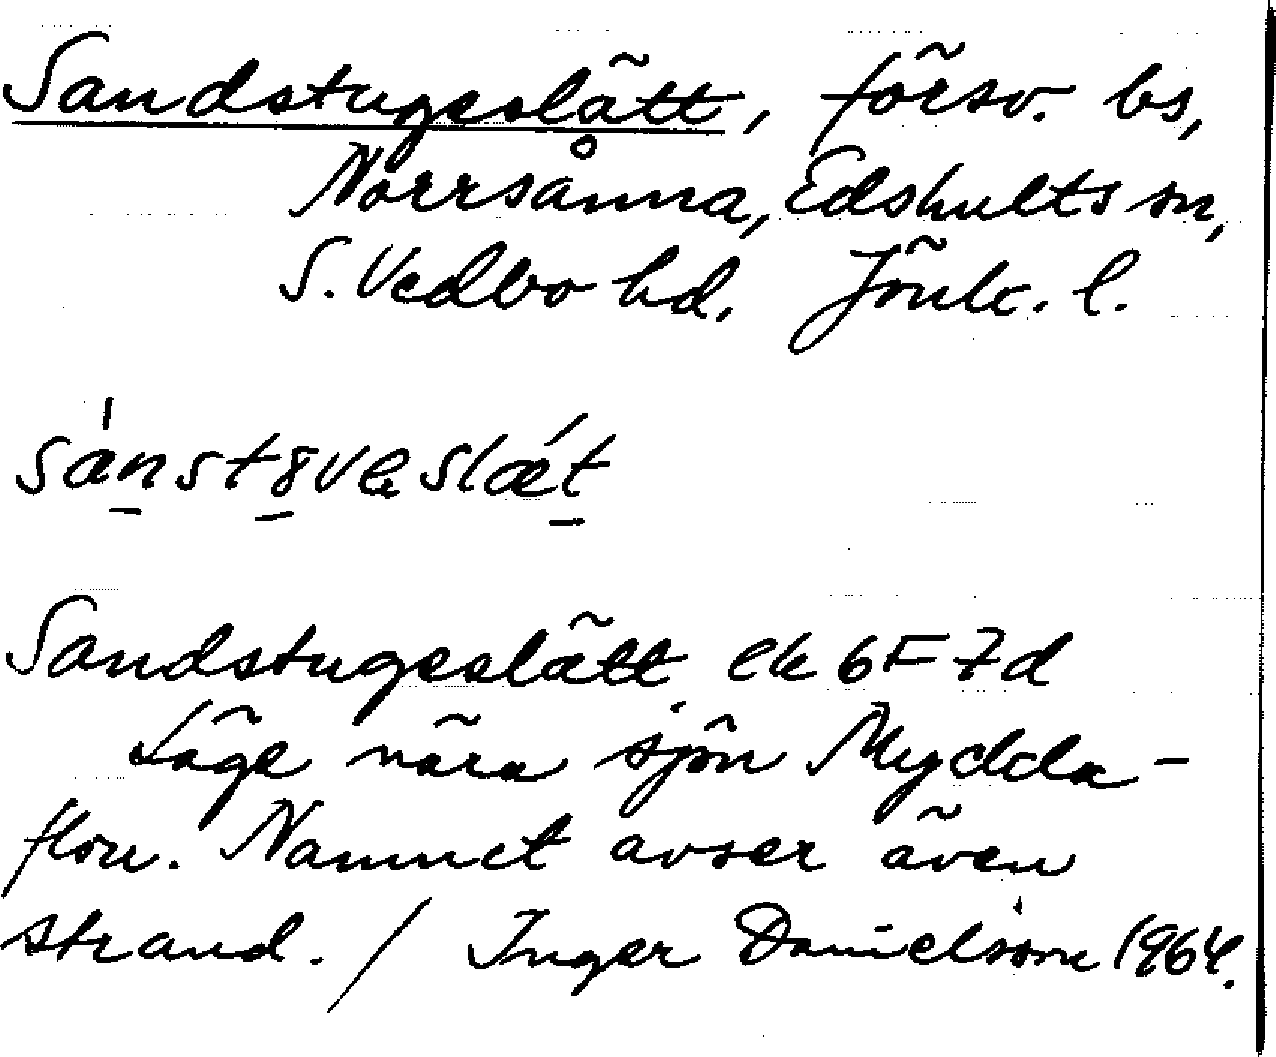 Sandstugeslätt, försv. bs,
Norrsånna, Edshults sn,
S. Vedbo hd. Jönk. l.
Sandstugeslätt ek 6F 7d
Läge nära sjön Mydda-
flon. Namnet avser även
strand. / Inger Danielsson 1964.